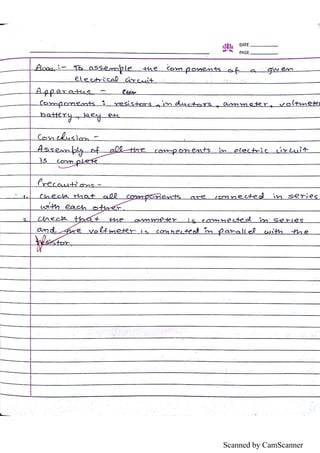 DATE
PAGE
Aim :- To assemple the components of a given
electrical circuit.
Apparatus -
Components : resistors, inductors, ammeter, voltmet
battery, key etc
Conclusion -
Assembly of all the components in electric circuit
is complete
Precautions -
1. Check that all components are connected in series
with each other.
2. check that the ammeter is connected in series
and the voltmeter is connected in parallel with the
resistor.
Scanned by CamScanner